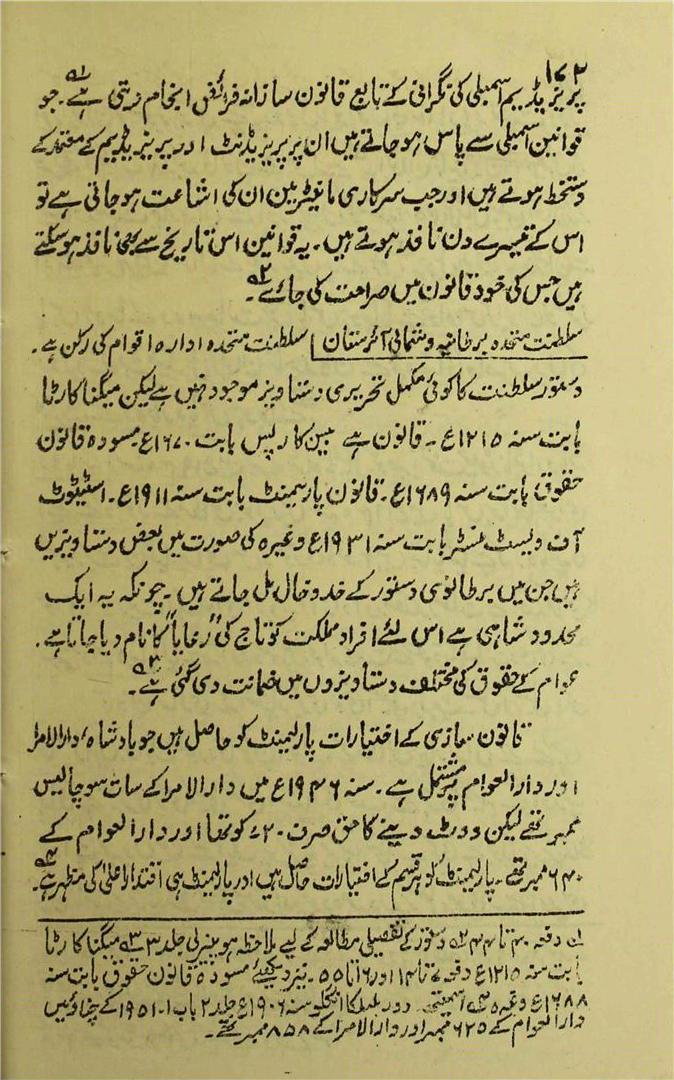 ۱۷۲
پریزیڈیم اسمبلی کی نگرانی کے تابع قانون سازانہ فرائض انجام دیتی ہے۔ جو
قوانین اسمبلی سے پاس ہو جاتے ہیں ان پر پریزیڈنٹ اور پریزیڈیم کے معتمد کے
دستخط ہوتے ہیں اور جب سرکاری مانیٹر میں ان کی اشاعت ہو جاتی ہے تو
اس کے تیسرے دن نافذ ہوتے ہیں۔ یہ قوانین اس تاریخ سے بھی نافذ ہو سکتے
ہیں جس کی خود قانون میں صراحت کی جائے۔
سلطنت متحدہ برطانیہ و شمالی آئرستان | سلطنت متحدہ ادارہ اقوام کی رکن ہے۔
دستور سلطنت کا کوئی مکمل تحریری دستاویز موجود نہیں ہے لیکن میگنا کارٹا
بابت سنہ ۱۲۱۵ع۔ قانون ہے بیس کارپس بابت ۱۶۷۰ع مسودہ قانون
حقوق بابت سنہ ۱۶۸۹ع۔ قانون پارلیمنٹ بابت سنہ ۱۹۱۱ع۔ اسٹیٹوٹ
آف ویسٹ منسٹر بابت سنہ ۱۹۳۱ع وغیرہ کی صورت میں بعض دستاویزیں
ہیں جن میں برطانوی دستور کے خدوخال مل جاتے ہیں۔ چونکہ یہ ایک
محدود شاہی ہے اس لئے افراد مملکت کو تاج کی "رعایا" کا نام دیا جاتا ہے۔
عوام کے حقوق کی مختلف دستاویزوں میں ضمانت دی گئی ہے۔
قانون سازی کے اختیارات پارلیمنٹ کو حاصل ہیں جو بادشاہ، دارالامرا
اور دارالعوام پر مشتمل ہے۔ سنہ ۱۹۴۶ع میں دارالامرا کے سات سو چالیس
ممبر تھے لیکن ووٹ دینے کا حق صرف ۷۲۰ کو تھا اور دارالعوام کے
۶۴۰ ممبر تھے۔ پارلیمنٹ کو ہر قسم کے اختیارات حاصل ہیں اور پارلیمنٹ ہی اقتدار اعلیٰ کی مظہر ہے۔
دفعہ ۴۰ تا ۴۴ دستور کے تفصیلی مطالعہ کے لیے ملاحظہ ہو جلد ۳ میگنا کارٹا
بابت سنہ ۱۲۱۵ع دفعہ تا ۱۴ اور ۱۶ تا ۵۵۔ نیز دیکھئے مسودۂ قانون حقوق بابت سنہ
۱۶۸۸ع وغیرہ سنہ ۱۹۰۶ع جلد ۲ باب ۱۔ ۱۹۵۱ کے چناؤ میں
دارالعوام کے ۶۲۵ ممبر اور دارالامرا کے ۸۵۸ ممبر تھے۔